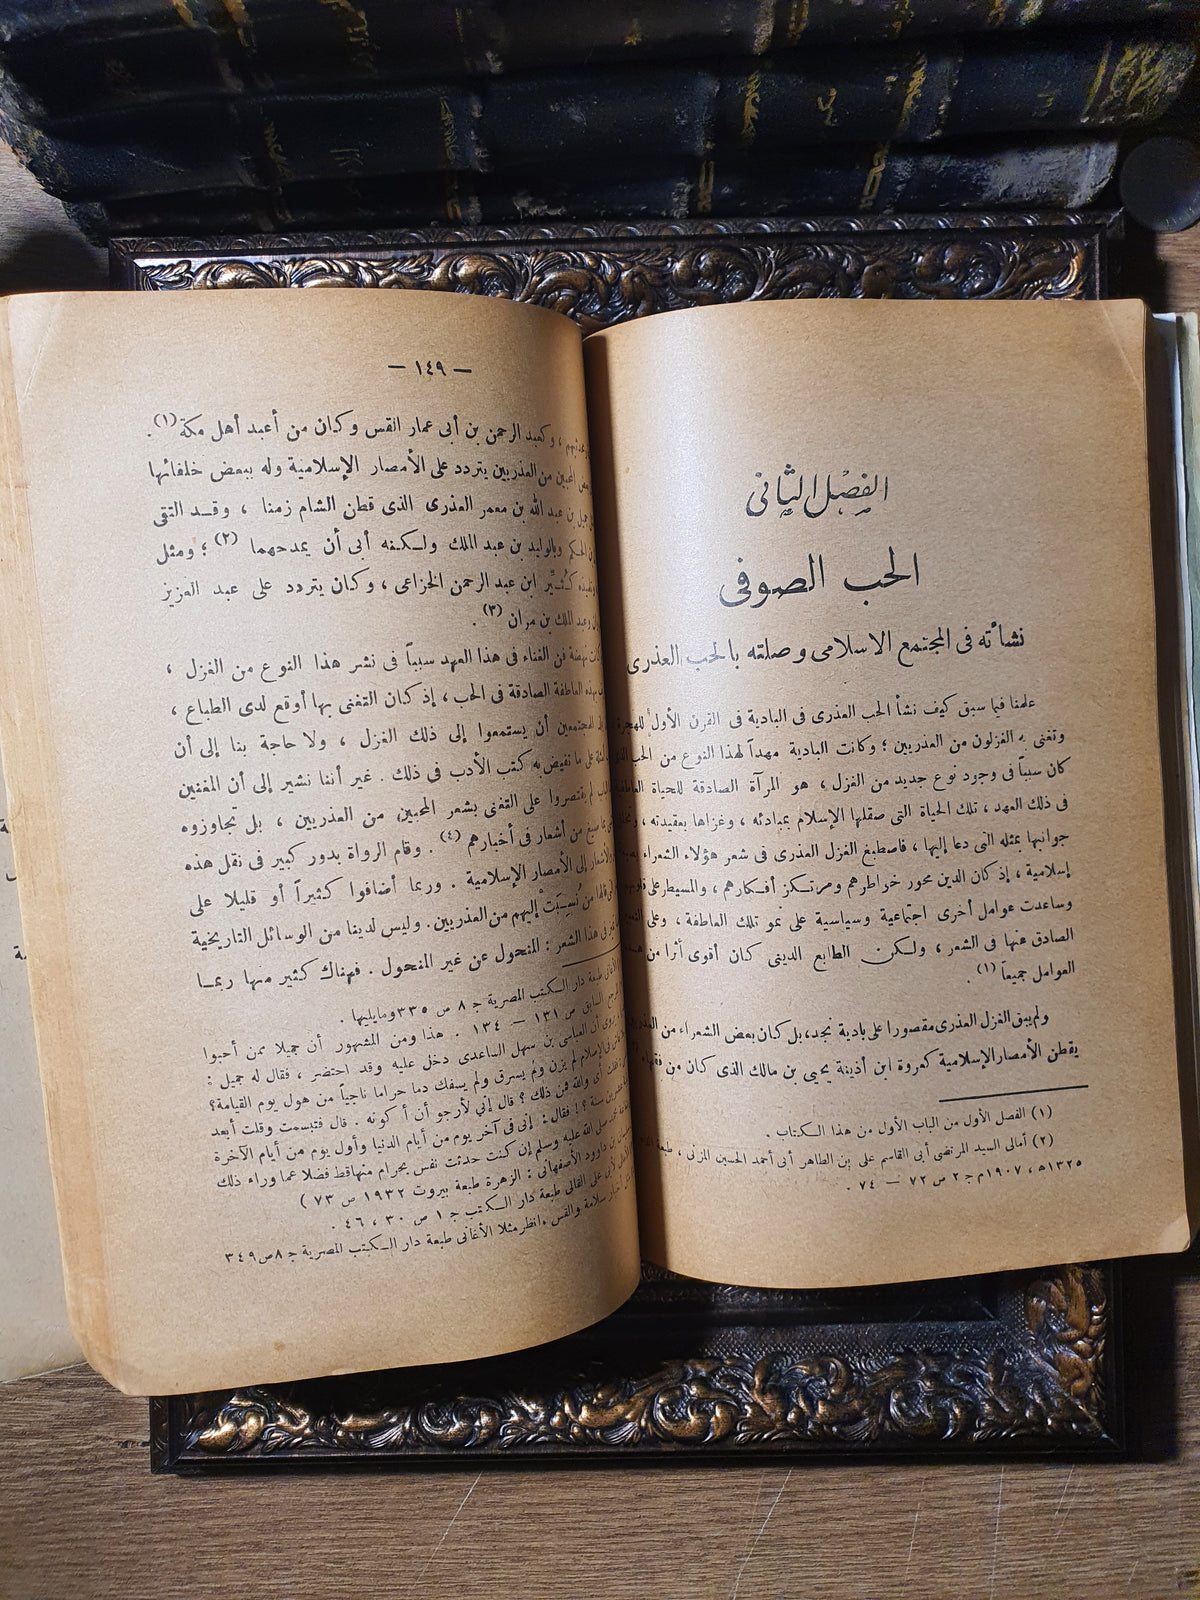 الفصل الثاني
الحب الصوفى
نشأته فى المجتمع الاسلامى وصلته بالحب العذرى
علمنا فيما سبق كيف نشأ الحب العذرى فى البادية فى القرن الأول للهجرة
وتغنى به الغزلون من العذريين ؛ وكانت البادية مهداً لهذا النوع من الحب الذى
كان سبباً فى وجود نوع جديد من الغزل ، هو المرآة الصادقة للحياة العاطفية
فى ذلك العهد ، تلك الحياة التى صقلها الإسلام بمبادئه ، وغزاها بعقيدته ،
جوانبها بمثله التى دعا إليها ، فاصطبغ الغزل العذرى فى شعر هؤلاء الشعراء
إسلامية ، إذ كان الدين محور خواطرهم ومرتكز أفكارهم ، والمسيطر على
وساعدت عوامل أخرى اجتماعية وسياسية على نمو تلك العاطفة ، وعلى
الصادق عنها فى الشعر ، ولكن الطابع الدينى كان أقوى أثرا من
العوامل جميعاً (١)
ولم يبق الغزل العذرى مقصورا على بادية نجد، بل كان بعض الشعراء من
يقطن الأمصار الإسلامية كعروة ابن أذينة يحيى بن مالك الذى كان من
(١) الفصل الأول من الباب الأول من هذا الكتاب .
(٢) أمالى السيد المرتضى أبى القاسم على بن الطاهر أبى أحمد الحسين المزنى ، طبعة
١٣٢٥ھ ، ١٩٠٧م ج ٢ ص ٧٢ — ٧٤ .
— ١٤٩ —
، وكعبد الرحمن بن أبى عمار القس وكان من أعبد أهل مكة (١) .
المحبين من العذريين يتردد على الأمصار الإسلامية وله ببعض خلفائها
جميل بن عبد الله بن معمر العذرى الذى قطن الشام زمنا ، وقد التقى
وبالوليد بن عبد الملك ولكنه أبى أن يمدحهما (٢) ؛ ومثل
كُثَيِّر ابن عبد الرحمن الخزاعى ، وكان يتردد على عبد العزيز
وعبد الملك بن مروان (٣) .
نهضة فن الغناء فى هذا العهد سبباً فى نشر هذا النوع من الغزل ،
بهذه العاطفة الصادقة فى الحب ، إذ كان التغنى بها أوقع لدى الطباع ،
المجتمعين أن يستمعوا إلى ذلك الغزل ، ولا حاجة بنا إلى أن
على ما تفيض به كتب الأدب فى ذلك . غير أننا نشير إلى أن المغنين
لم يقتصروا على التغنى بشعر المحبين من العذريين ، بل تجاوزوه
من أشعار فى أخبارهم (٤) . وقام الرواة بدور كبير فى نقل هذه
والأشعار إلى الأمصار الإسلامية . وربما أضافوا كثيراً أو قليلا على
من نُسِبَتْ إليهم من العذريين. وليس لدينا من الوسائل التاريخية
فى هذا الشعر : المنحول عن غير المنحول . فهناك كثير منها ربما
طبعة دار الكتب المصرية ج ٨ ص ٣٣٥ ومايليها .
السابق ص ١٣١ — ١٣٤ . هذا ومن المشهور أن جميلا ممن أحبوا
أن العباس بن سهل الساعدى دخل عليه وقد احتضر ، فقال له جميل :
فى الإسلام لم يزن ولم يسرق ولم يسفك دما حراما ناجياً من هول يوم القيامة؟
أى والله فمن ذلك ؟ قال إني لأرجو أن أكونه . قال فتبسمت وقلت أبعد
سنة ؟! فقال : إنى فى آخر يوم من أيام الدنيا وأول يوم من أيام الآخرة
محمد صلى الله عليه وسلم إن كنت حدثت نفسى بحرام منها قط فضلا عما وراء ذلك
بن داوود الأصفهانى : الزهرة طبعة بيروت ١٩٣٢ ص ٧٣ )
لأبى على القالى طبعة دار الكتب ج ١ ص ٣٠ ، ٤٦ .
أخبار سلامة والقس . انظر مثلا الأغانى طبعة دار الكتب المصرية ج ٨ ص ٣٤٩